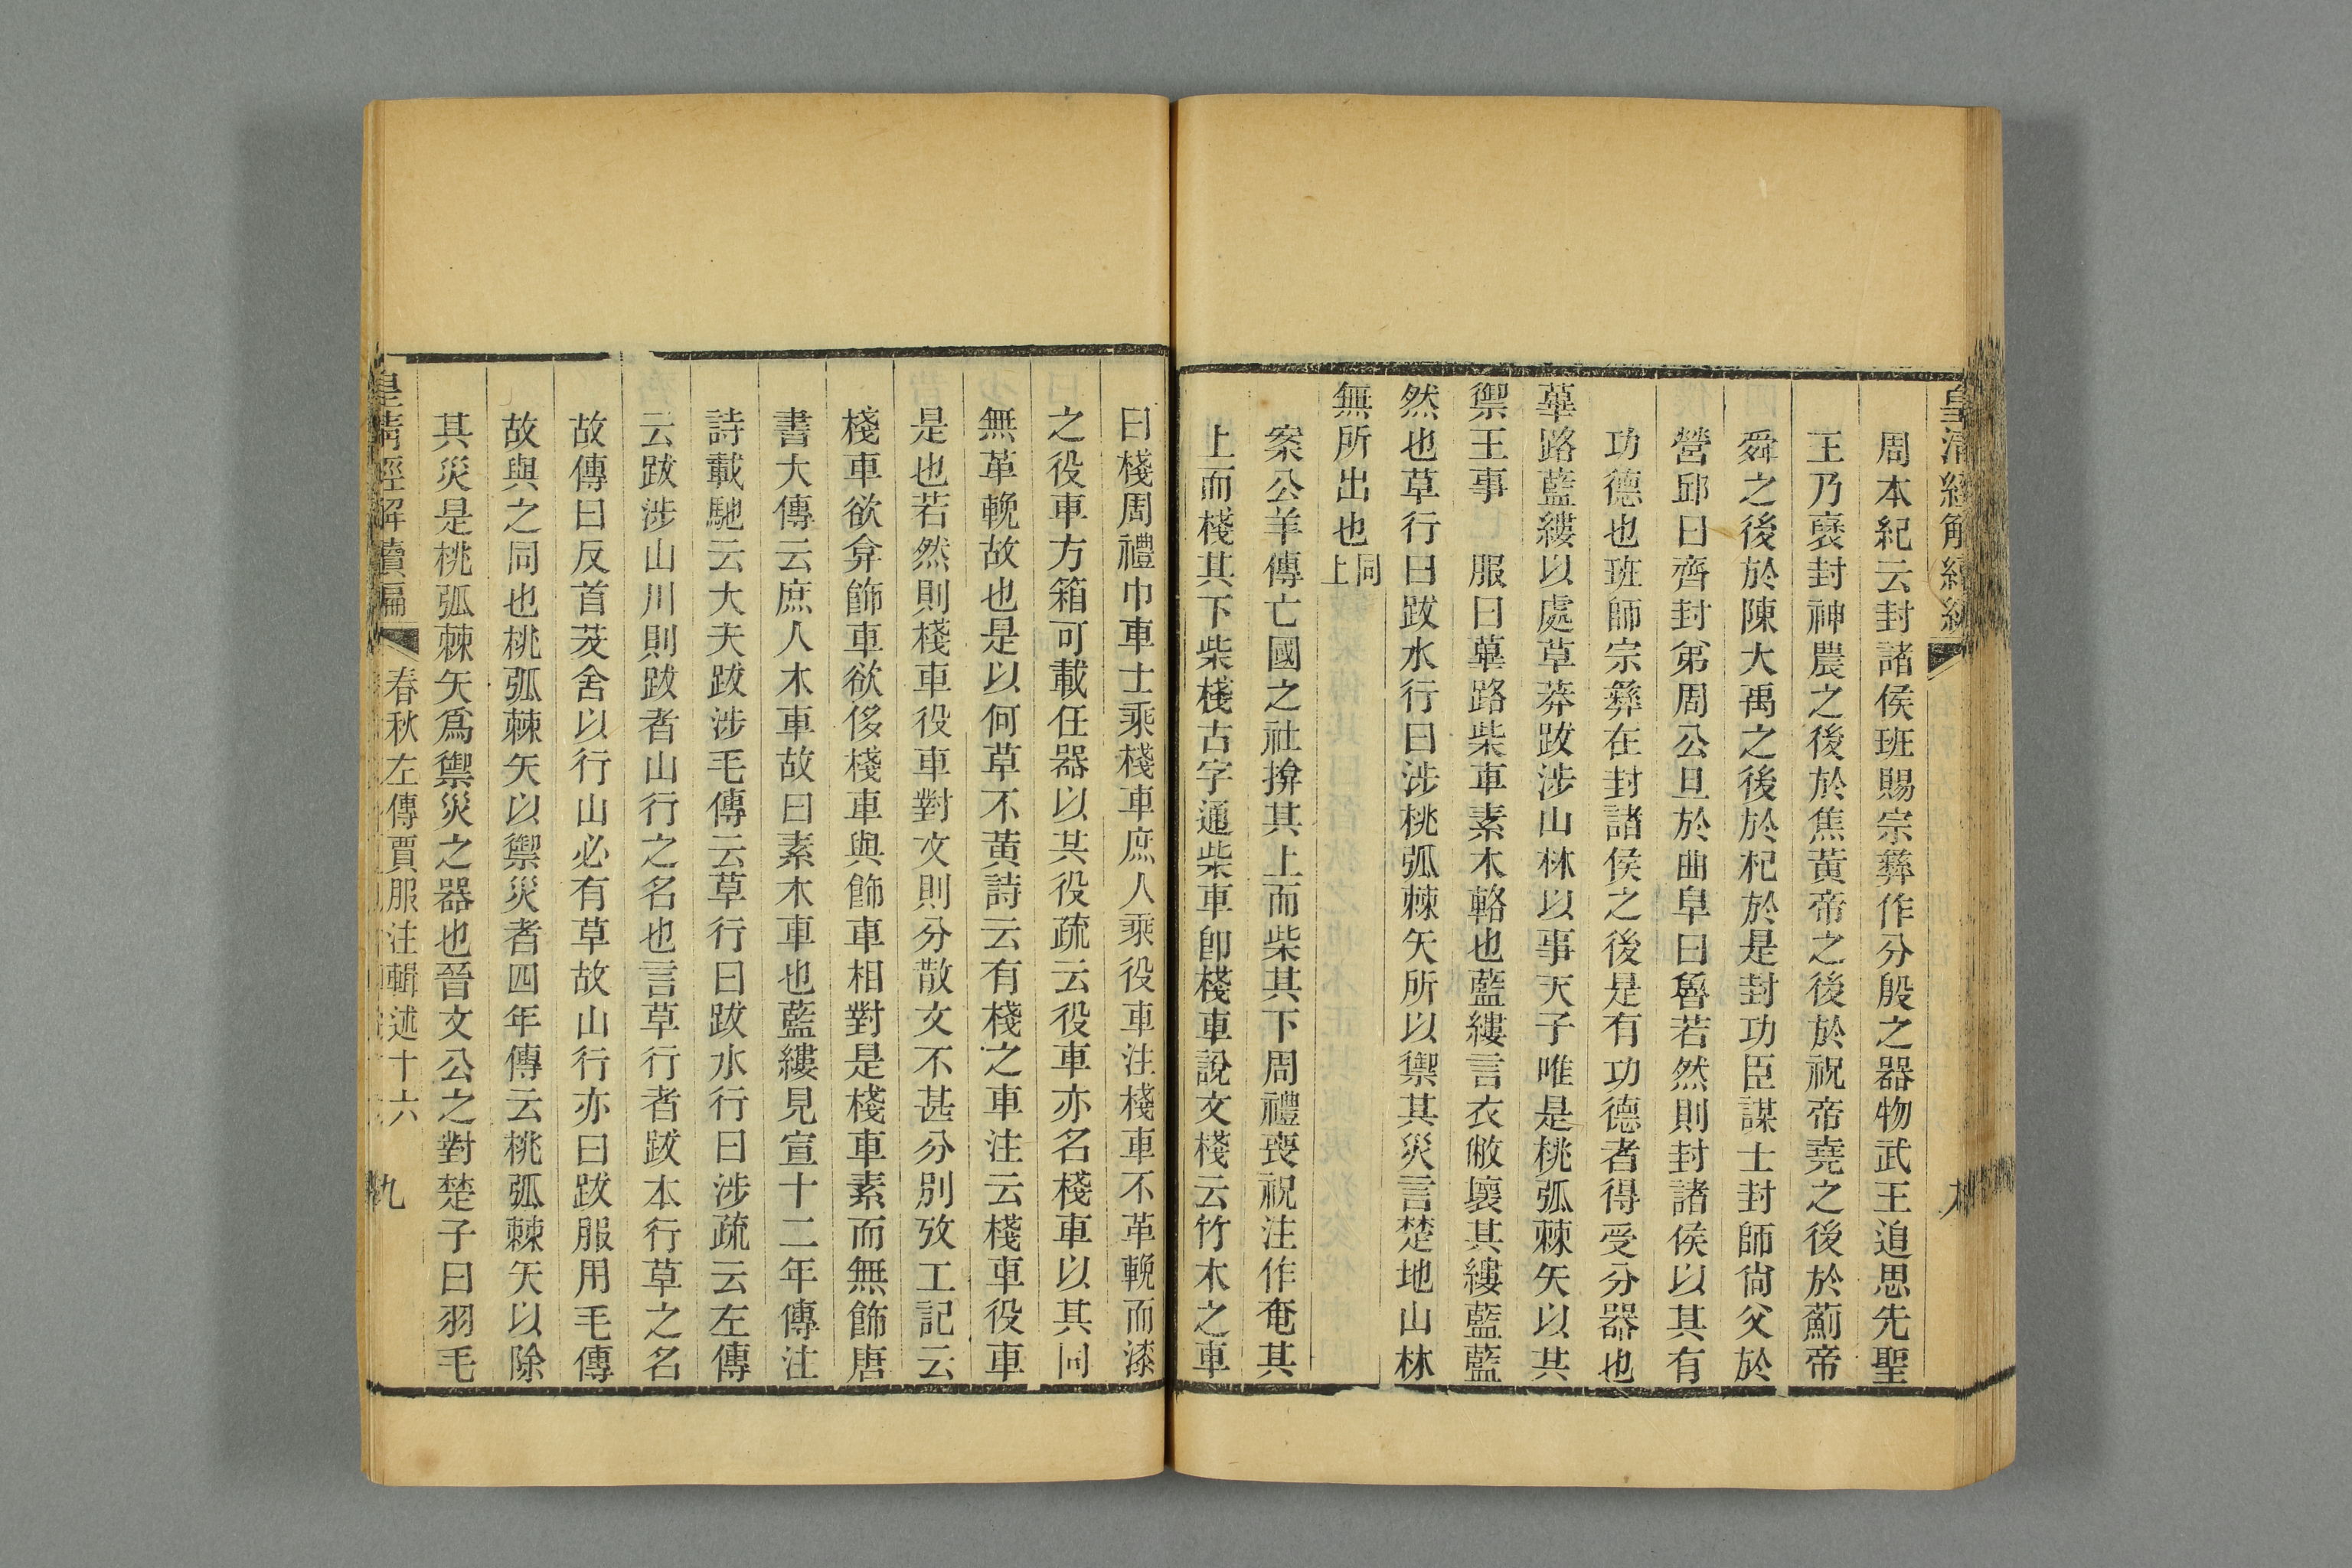 皇清經解續編
周本紀云封諸侯班賜宗彝作分殷之器物武王追思先聖
王乃襃封神農之後於焦黃帝之後於祝帝堯之後於薊帝
舜之後於陳大禹之後於杞於是封功臣謀士封師尙父於
營邱曰齊封弟周公旦於曲阜曰魯若然則封諸侯以其有
功德也班師宗彝在封諸侯之後是有功德者得受分器也
篳路藍縷以處草莽跋涉山林以事天子唯是桃弧棘矢以共
禦王事　服曰篳路柴車素木輅也藍縷言衣敝壞其縷藍藍
然也草行曰跋水行曰涉桃弧棘矢所以禦其災言楚地山林
無所出也同上
案公羊傳亡國之社揜其上而柴其下周禮喪祝注作奄其
上而棧其下柴棧古字通柴車卽棧車說文棧云竹木之車
曰棧周禮巾車士乘棧車庶人乘役車注棧車不革輓而漆
之役車方箱可載任器以共役疏云役車亦名棧車以其同
無革輓故也是以何草不黃詩云有棧之車注云棧車役車
是也若然則棧車役車對文則分散文不甚分別攷工記云
棧車欲弇飾車欲侈棧車與飾車相對是棧車素而無飾唐
書大傳云庶人木車故曰素木車也藍縷見宣十二年傳注
詩載馳云大夫跋涉毛傳云草行曰跋水行曰涉疏云左傳
云跋涉山川則跋者山行之名也言草行者跋本行草之名
故傳曰反首茇舍以行山必有草故山行亦曰跋服用毛傳
故與之同也桃弧棘矢以禦災者四年傳云桃弧棘矢以除
其災是桃弧棘矢爲禦災之器也晉文公之對楚子曰羽毛
皇清經解續編　春秋左傳賈服注輯述十六　九